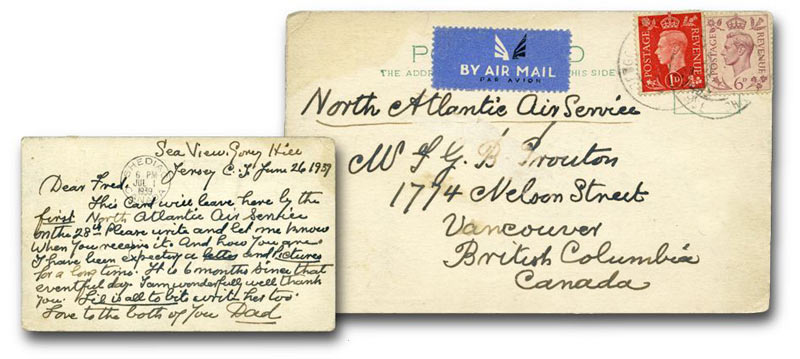 Sea View. Gorey Hill
Jersey C.I. June 26 1939
SHEDIAC
6 PM
JUL 1
1939
Dear Fred.
This Card will leave here by the
first North Atlantic Air Service
on the 28th Please write and let me know
when you receive it. And how you are
I have been expecting a letter and Pictures
for a long time. It is 6 months since that
eventful day. I am wonderfully well thank
you. Lil is all to bits write her too.
Love to the both of you Dad
BY AIR MAIL
PAR AVION
POSTAGE REVENUE
1D
POSTAGE REVENUE
6D
THE ADDRE THIS SIDE
North Atlantic Air Service
Mr F G B Prouton
1774 Nelson Street
Vancouver
British Columbia
Canada